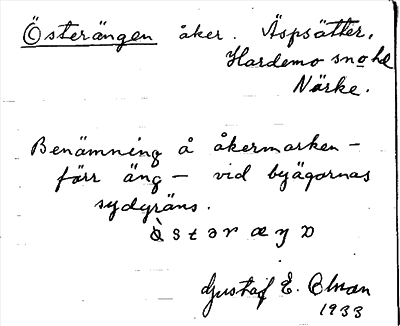 Österängen åker. Äspsätter,
Hardemo sn o hd
Närke.
Benämning å åkermarken –
förr äng – vid byägornas
sydgräns.
Gustaf E. Elman
1933